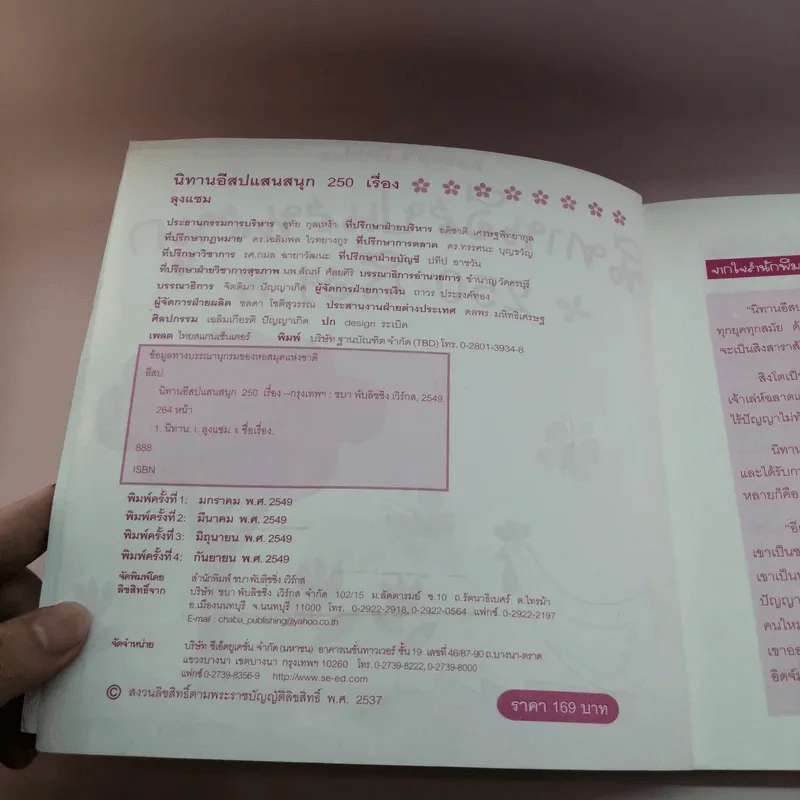 นิทานอีสปแสนสนุก 250 เรื่อง
ลุงแซม
ประธานกรรมการบริหาร อุทัย กุลเหง้า ที่ปรึกษาฝ่ายบริหาร อติชาติ เศรษฐพิทยากุล
ที่ปรึกษากฎหมาย ดร.เฉลิมพล ไวทยางกูร ที่ปรึกษาการตลาด ดร.ทรรศนะ บุญขวัญ
ที่ปรึกษาวิชาการ รศ.กมล อายาวัฒนะ ที่ปรึกษาฝ่ายบัญชี ปทีป อาชวัน
ที่ปรึกษาฝ่ายวิชาการสุขภาพ นพ.สัณห์ ศัลยศิริ บรรณาธิการอำนวยการ ชำนาญ วัดครบุรี
บรรณาธิการ จิตติมา ปัญญาเกิด ผู้จัดการฝ่ายการเงิน ถาวร ประรงค์ทอง
ผู้จัดการฝ่ายผลิต ชลดา โชติสุวรรณ ประสานงานฝ่ายต่างประเทศ ดลพร มหิทธิเศรษฐ
ศิลปกรรม เฉลิมเกียรติ ปัญญาเกิด ปก design ระเบิด
เพลต ไทยสแกนเซ็นเตอร์ พิมพ์ บริษัท ฐานบัณฑิต จำกัด (TBD) โทร. 0-2801-3934-8
ข้อมูลทางบรรณานุกรมของหอสมุดแห่งชาติ
อีสป.
นิทานอีสปแสนสนุก 250 เรื่อง --กรุงเทพฯ : ชบา พับลิชชิ่ง เวิร์กส, 2549.
264 หน้า
1. นิทาน. I. ลุงแซม. II ชื่อเรื่อง.
888
ISBN
พิมพ์ครั้งที่ 1: มกราคม พ.ศ. 2549
พิมพ์ครั้งที่ 2: มีนาคม พ.ศ. 2549
พิมพ์ครั้งที่ 3: มิถุนายน พ.ศ. 2549
พิมพ์ครั้งที่ 4: กันยายน พ.ศ. 2549
จัดพิมพ์โดย สำนักพิมพ์ ชบา พับลิชชิ่ง เวิร์กส
ลิขสิทธิ์จาก บริษัท ชบา พับลิชชิ่ง เวิร์กส จำกัด 102/15 ม.ลัดดารมย์ ซ.10 ถ.รัตนาธิเบศร์ ต.ไทรม้า
อ.เมืองนนทบุรี จ.นนทบุรี 11000 โทร. 0-2922-2918, 0-2922-0564 แฟกซ์. 0-2922-2197
E-mail : chaba_publishing@yahoo.co.th
จัดจำหน่าย บริษัท ซีเอ็ดยูเคชั่น จำกัด (มหาชน) อาคารเนชั่นทาวเวอร์ ชั้น 19 เลขที่ 46/87-90 ถ.บางนา-ตราด
แขวงบางนา เขตบางนา กรุงเทพฯ 10260 โทร. 0-2739-8222, 0-2739-8000
แฟกซ์ 0-2739-8356-9 http://www.se-ed.com
© สงวนลิขสิทธิ์ตามพระราชบัญญัติลิขสิทธิ์ พ.ศ. 2537
ราคา 169 บาท
จากใจสำนักพิม
"นิทานอีส
ทุกยุคทุกสมัย
จะเป็นสิงสาราสั
สิงโตเป็
เจ้าเล่ห์ฉลาดแ
ไร้ปัญญาไม่ทั
นิทาน
และได้รับกา
หลายก็คือ
"อี
เขาเป็นช
เขาเป็น
ปัญญา
คนใหม
เขาออ
อิตจ์ม